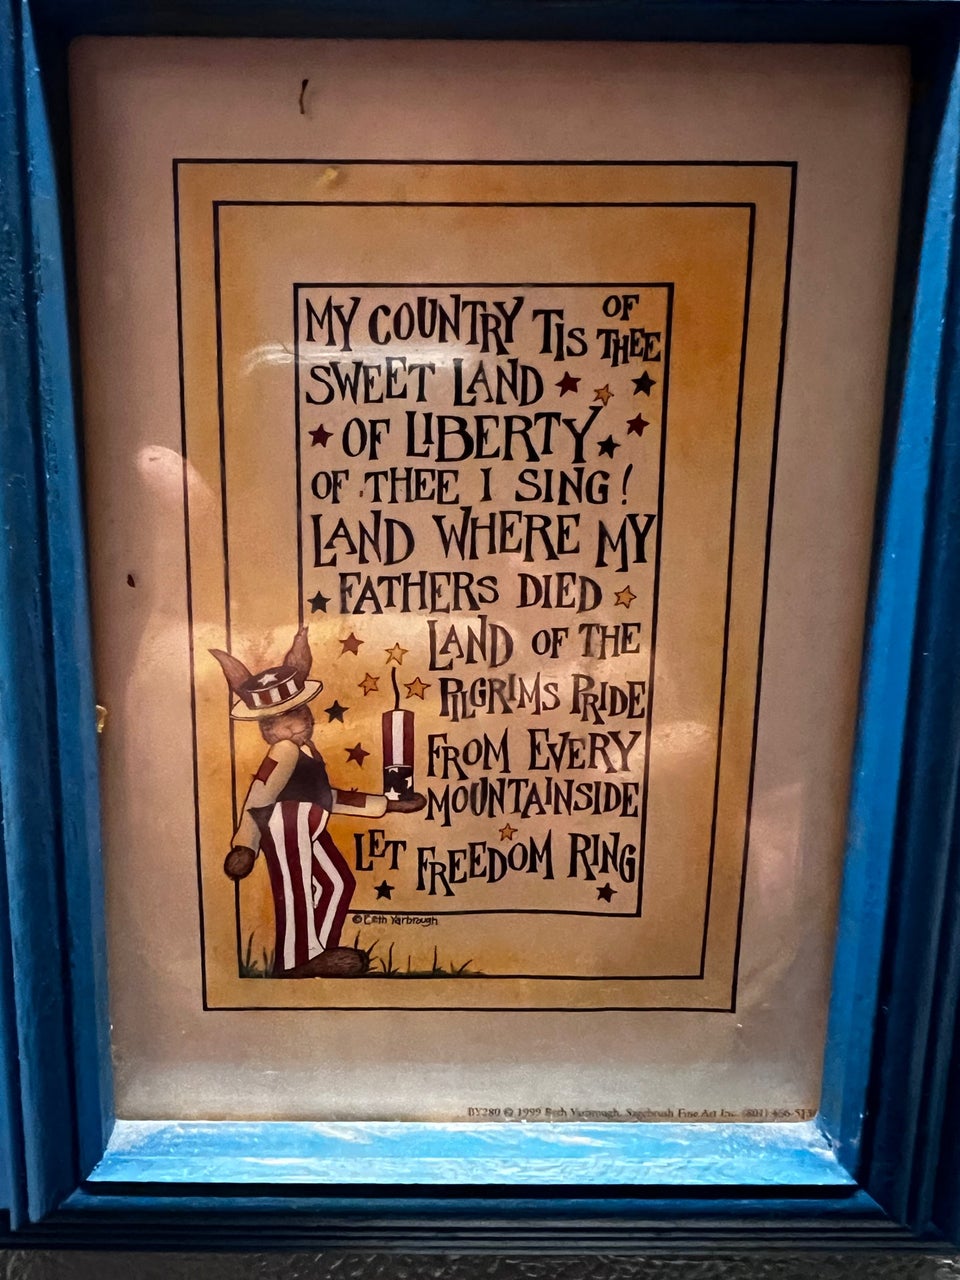 MY COUNTRY TIS OF THEE
SWEET LAND
OF LIBERTY
OF THEE I SING!
LAND WHERE MY
FATHERS DIED
LAND OF THE
PILGRIMS PRIDE
FROM EVERY
MOUNTAINSIDE
LET FREEDOM RING
© Beth Yarbrough
BY280 © 1999 Beth Yarbrough, Sagebrush Fine Art Inc. (801) 466-513